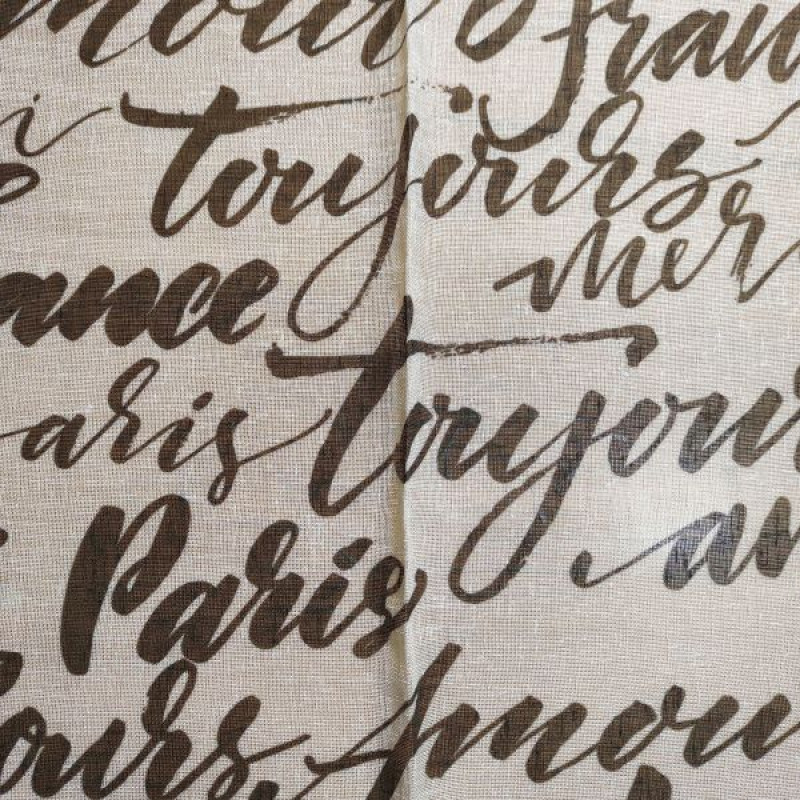 mour Fran
i toujours
mer
ance
toujour
aris
am
Paris
ours Amou